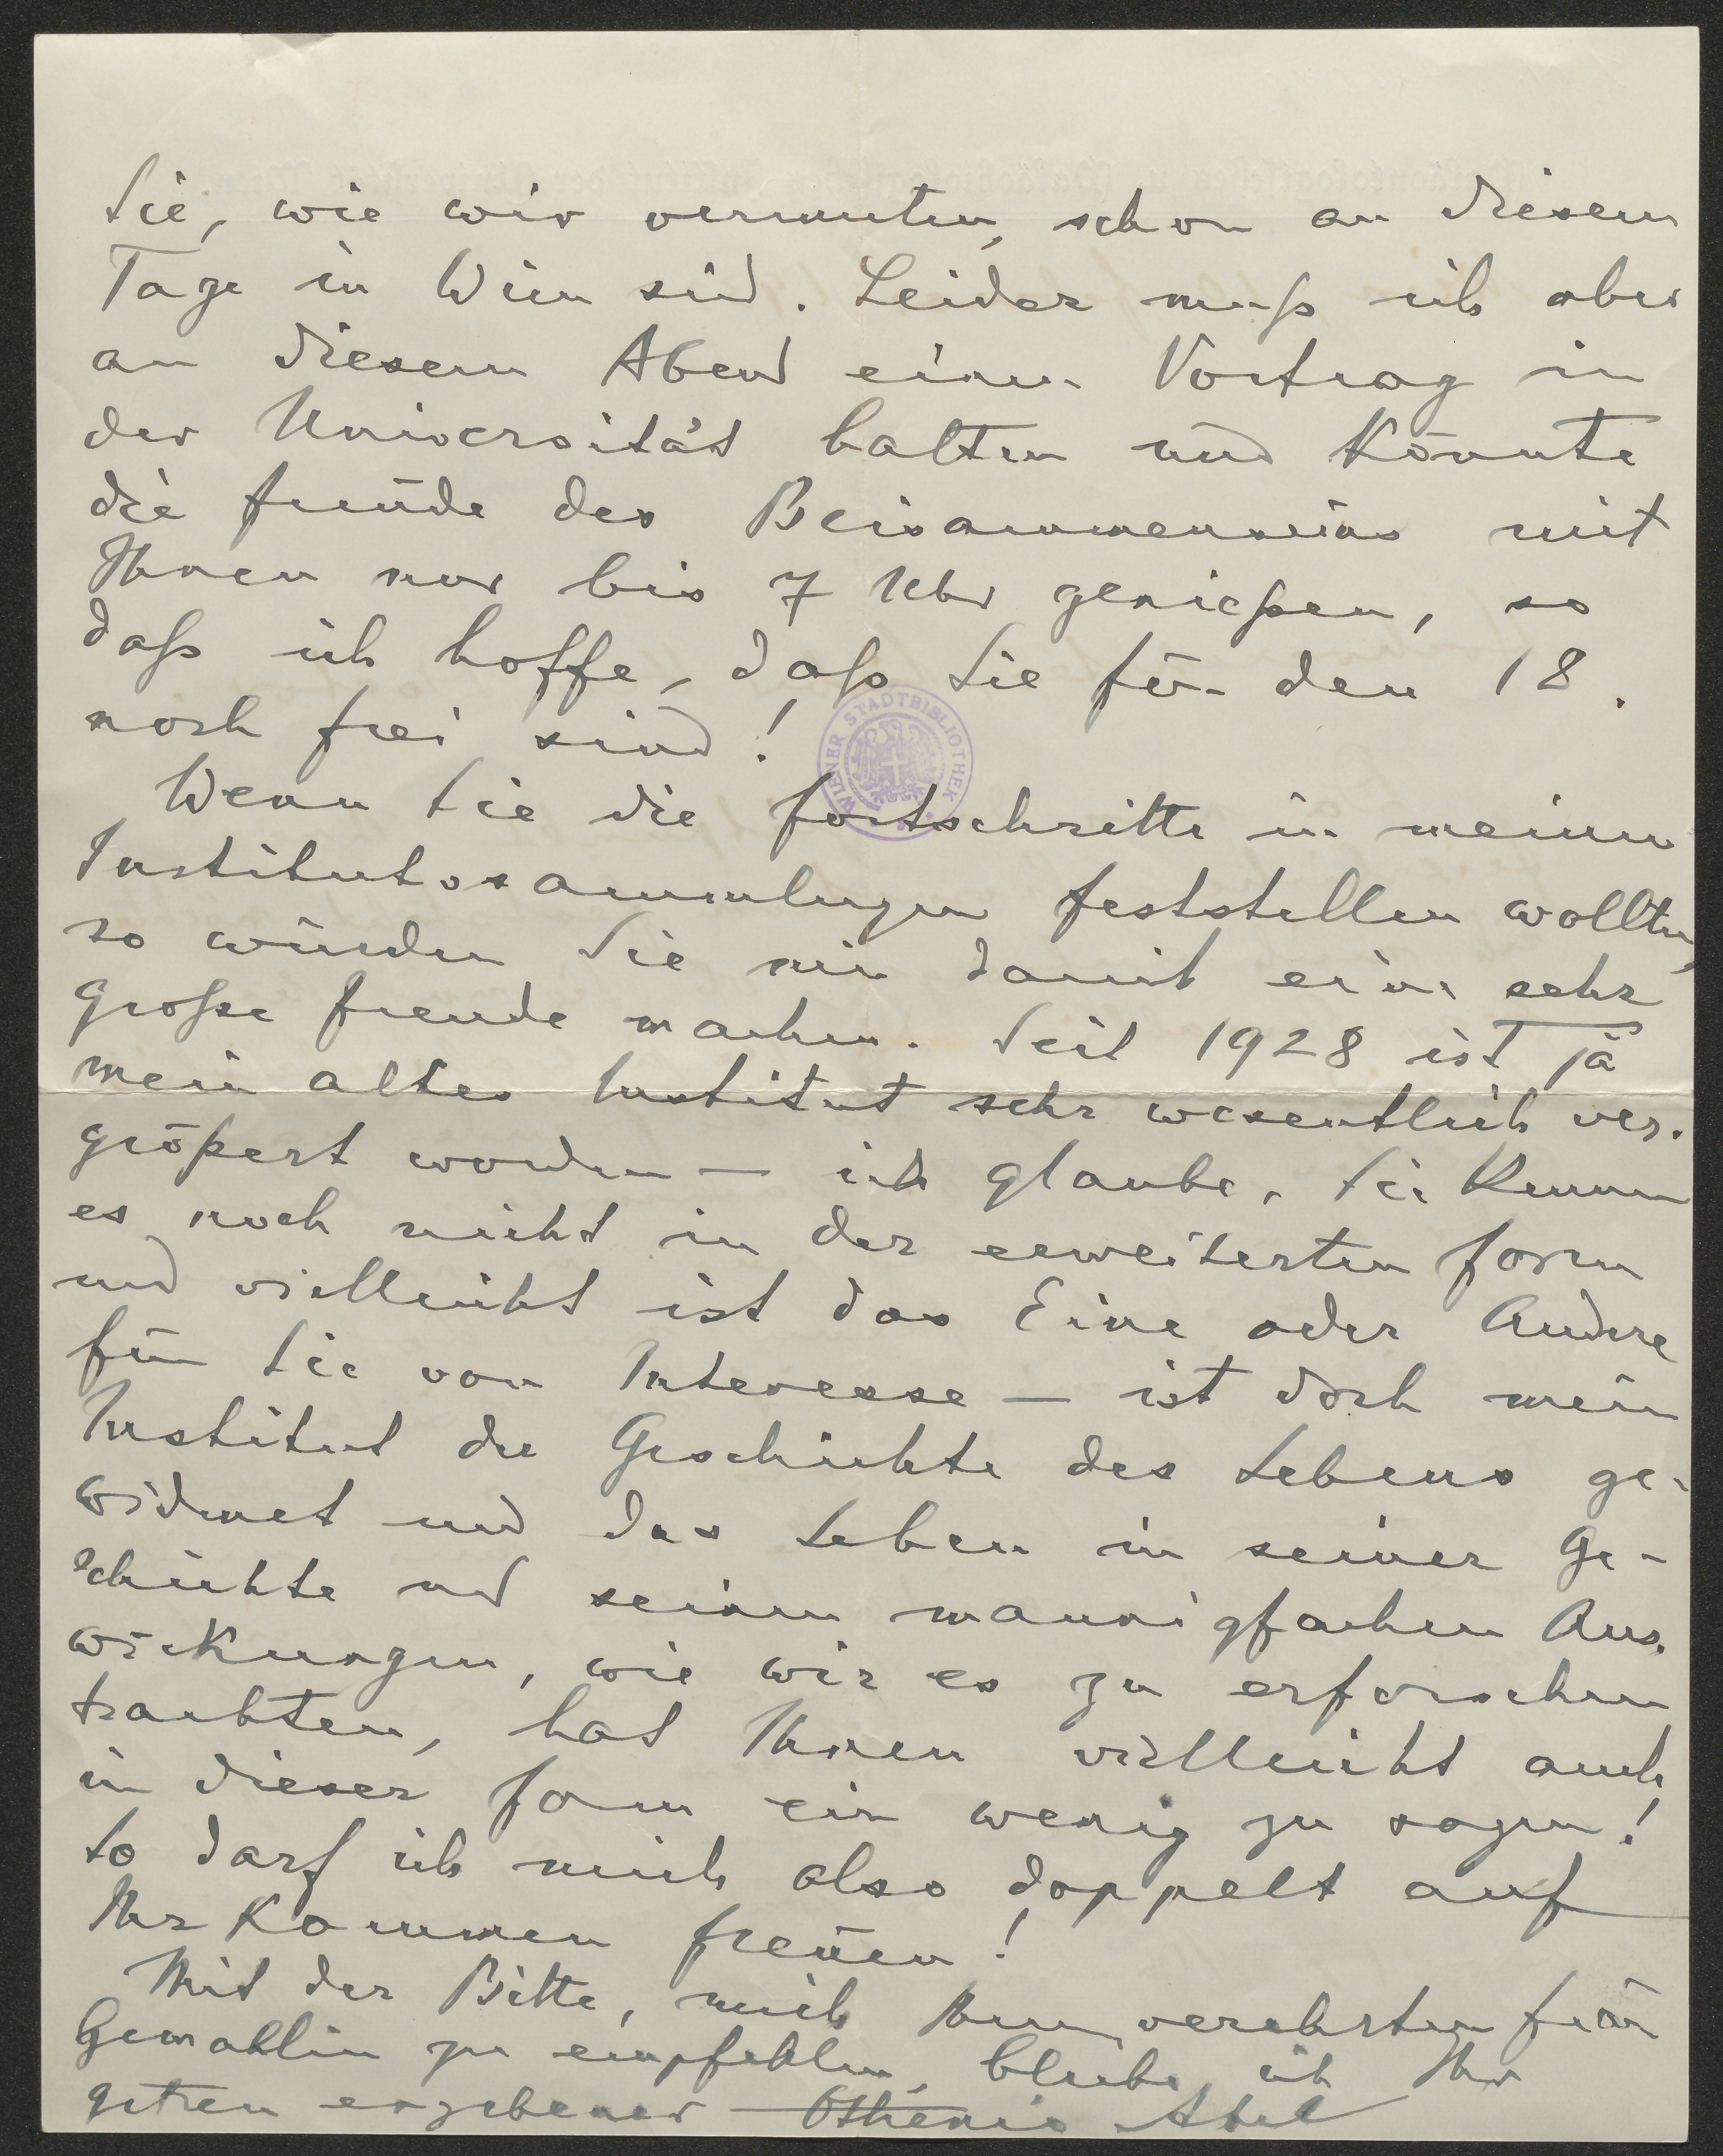 Sie, wie wir vermuten, schon an diesem
Tage in Wien sind. Leider muß ich aber
an diesem Abend einen Vortrag in
der Universität halten und könnte
die Freude des Beisammenseins mit
Ihnen nur bis 7 Uhr genießen, so
daß ich hoffe, daß Sie für den 18.
noch frei sind!
WIENER STADTBIBLIOTHEK
Wenn Sie die Fortschritte in meinen
Institutssammlungen feststellen wollten,
so würden Sie mir damit eine sehr
große Freude machen. Seit 1928 ist ja
mein altes Institut sehr wesentlich ver-
größert worden — ich glaube, Sie kennen
es noch nicht in der erweiterten Form
und vielleicht ist das Eine oder Andere
für Sie von Interesse — ist doch mein
Institut der Geschichte des Lebens ge-
widmet und das Leben in seiner Ge-
schichte und seinen mannigfachen Aus-
wirkungen, wie wir es zu erforschen
trachten, hat Ihnen vielleicht auch
in dieser Form ein wenig zu sagen!
So darf ich mich also doppelt auf
Ihr Kommen freuen!
Mit der Bitte, mich Ihrer verehrten Frau
Gemahlin zu empfehlen, bleibe ich Ihr
getreu ergebener Othenio Abel